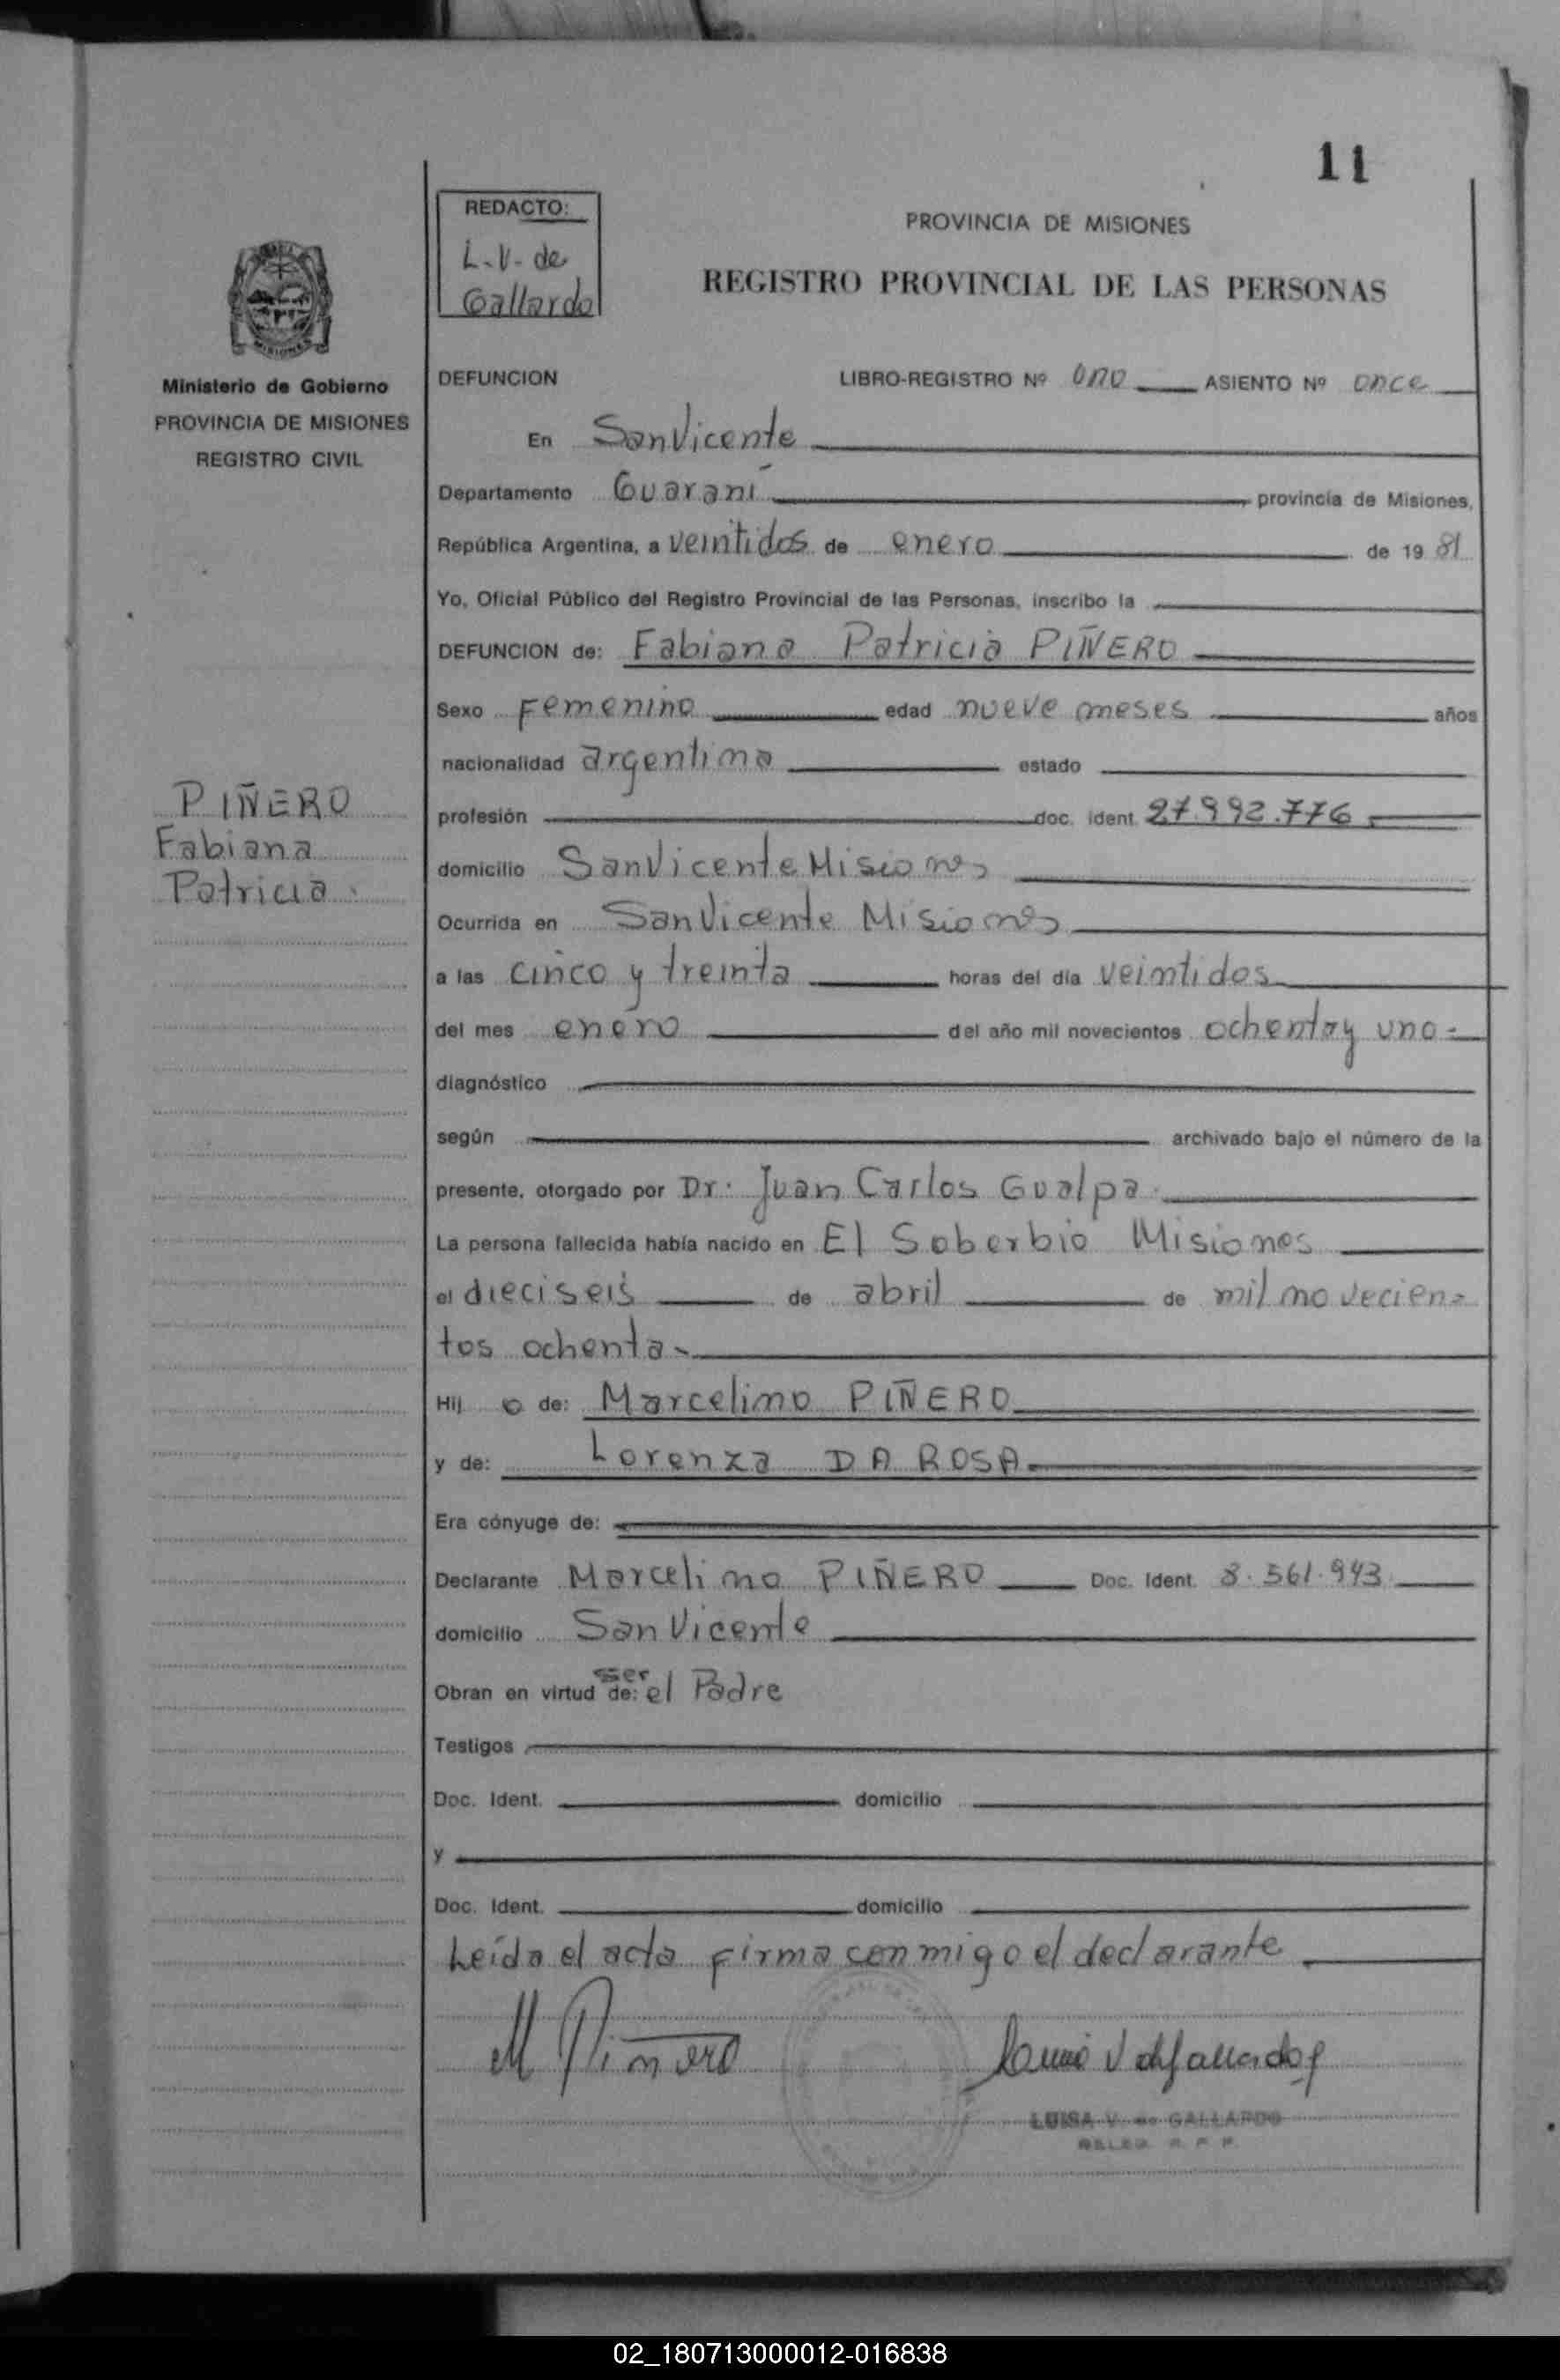 11
REDACTO:
L.V. de
Gallardo
PROVINCIA DE MISIONES
REGISTRO PROVINCIAL DE LAS PERSONAS
MISIONES
Ministerio de Gobierno
PROVINCIA DE MISIONES
REGISTRO CIVIL
PIÑERO
Fabiana
Patricia.
DEFUNCION LIBRO-REGISTRO Nº uno ASIENTO Nº once
En San Vicente
Departamento Guaraní provincia de Misiones,
República Argentina, a veintidos de enero de 19 81
Yo, Oficial Público del Registro Provincial de las Personas, inscribo la
DEFUNCION de: Fabiana Patricia PIÑERO
Sexo Femenino edad nueve meses años
nacionalidad argentina estado
profesión doc. ident. 27.992.776
domicilio San Vicente Misiones
Ocurrida en San Vicente Misiones
a las cinco y treinta horas del día veintidos
del mes enero del año mil novecientos ochenta y uno-
diagnóstico
según archivado bajo el número de la
presente, otorgado por Dr. Juan Carlos Gualpa
La persona fallecida había nacido en El Soberbio Misiones
el dieciseis de abril de mil novecien=
tos ochenta-
Hij a de: Marcelino PIÑERO
y de: Lorenza DA ROSA
Era cónyuge de:
Declarante Marcelino PIÑERO Doc. Ident. 8.561.943
domicilio San Vicente
Obran en virtud de: ser el Padre
Testigos
Doc. Ident. domicilio
y
Doc. Ident. domicilio
Leída el acta firma conmigo el declarante
M Piñero
LUISA V. de GALLARDO
DELEG. R. P. P.
02_180713000012-016838